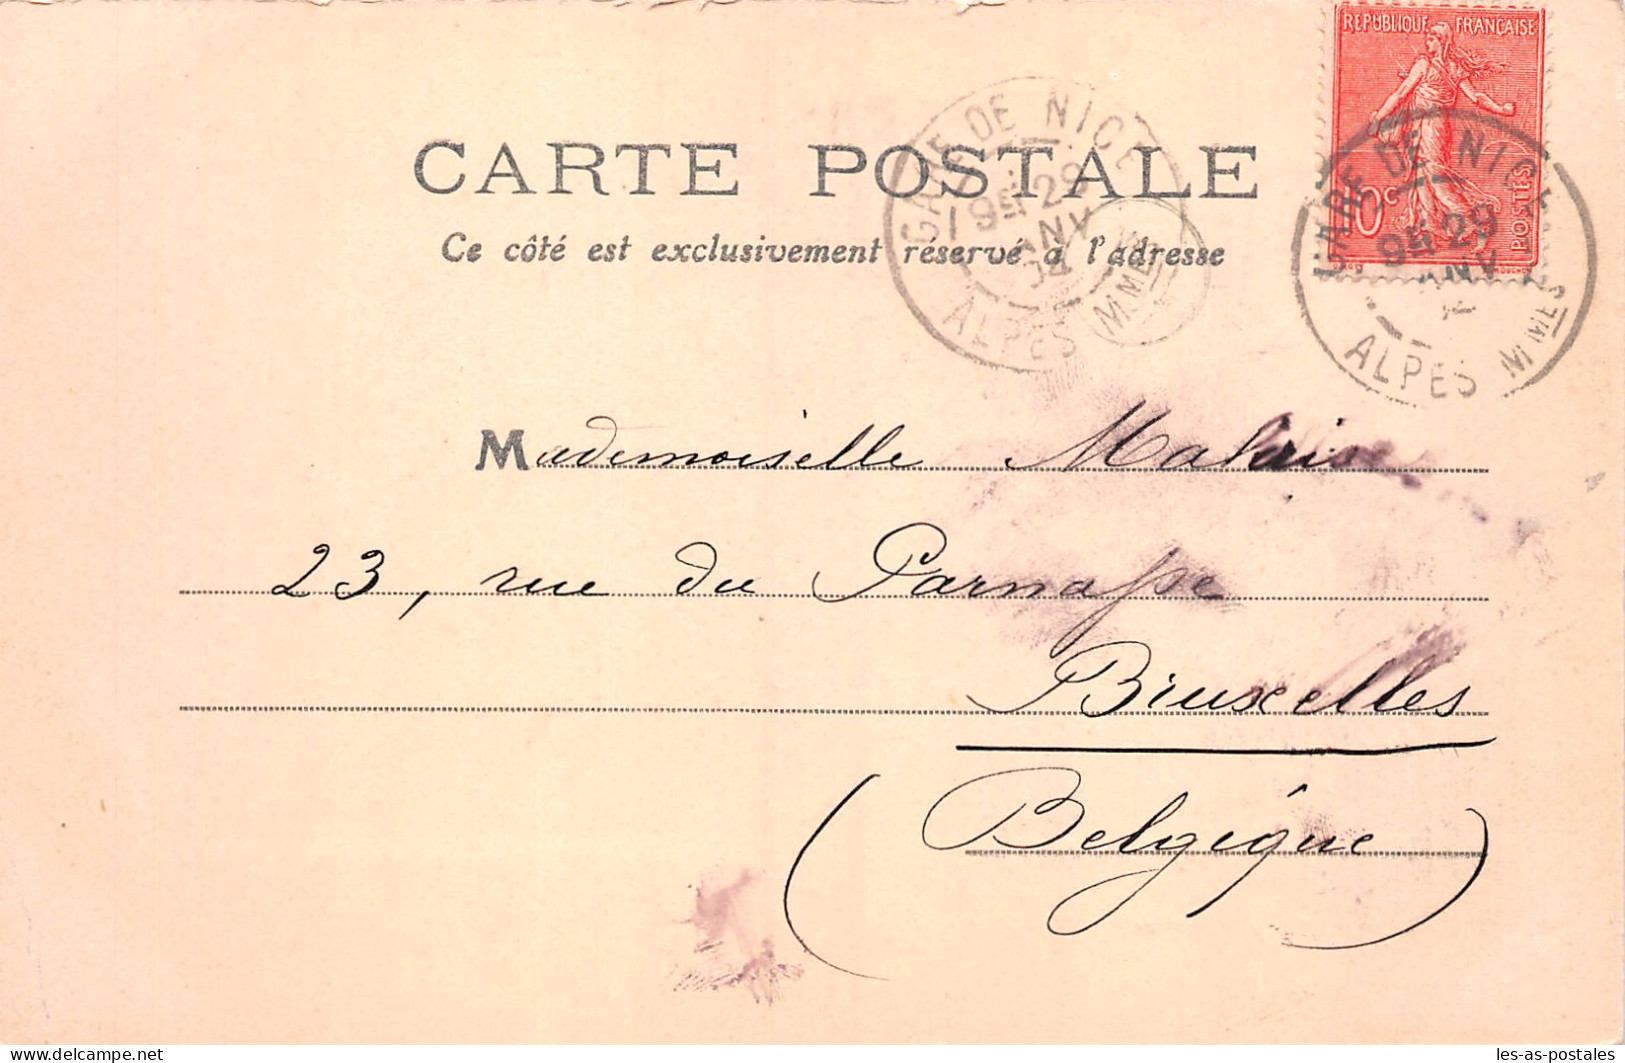 REPUBLIQUE FRANÇAISE
10c
POSTES
GARE DE NICE
9E 29
ANV
ALPES MMES
GARE DE NICE
9E 29
ANV
04
ALPES MMES
CARTE POSTALE
Ce côté est exclusivement réservé à l'adresse
Mademoiselle Malaise
23, rue du Parnasse
Bruxelles
(Belgique)
les-as-postales
delcampe.net